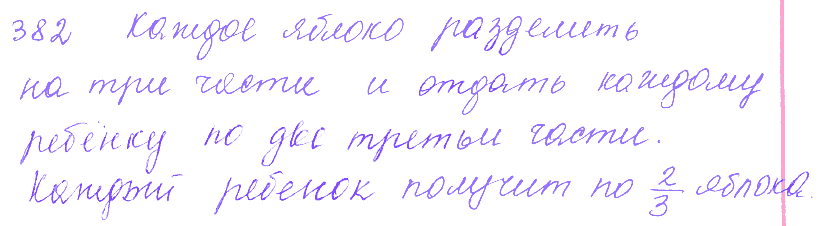 382 Каждое яблоко разделить
на три части и отдать каждому
ребёнку по две третьи части.
Каждый ребенок получит по 2/3 яблока.